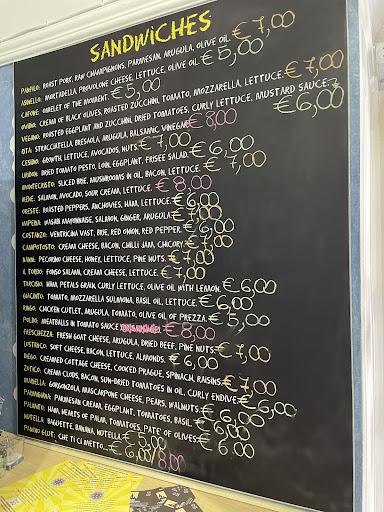 SANDWICHES
PANFILO: ROAST PORK, RAW CHAMPIGNONS, PARMESAN, ARUGULA, OLIVE OIL. €7,00
AGNELLO: MORTADELLA, PROVOLONE CHEESE, LETTUCE, OLIVE OIL. €5,00
CAFONE: OMELET OF THE MOMENT. €5,00
OVIDIO: CREAM OF BLACK OLIVES, ROASTED ZUCCHINI, TOMATO, MOZZARELLA, LETTUCE. €7,00
VEGANO: ROASTED EGGPLANT AND ZUCCHINI, DRIED TOMATOES, CURLY LETTUCE, MUSTARD SAUCE. €6,00
RITA: STRACCIATELLA BRESAOLA, ARUGULA, BALSAMIC VINEGAR €8,00
CESIRA: GROWTH, LETTUCE, AVOCADOS, NUTS. €7,00
DRIED TOMATO PESTO, LOIN, EGGPLANT, FRISEE SALAD. €6,00
MONTECRISTO: SLICED BRIE, MUSHROOMS IN OIL, BACON, LETTUCE. €7,00
IRENE: SALMON, AVOCADO, SOUR CREAM, LETTUCE. €8,00
ORESTE: ROASTED PEPPERS, ANCHOVIES, HAM, LETTUCE €6,00
IMPERIA: WASABI MAYONNAISE, SALMON, GINGER, ARUGULA €7,00
COSTANZO: VENTRICINA VAST, BRIE, RED ONION, RED PEPPER. €6,00
CAMPOTOSTO: CREAM CHEESE, BACON, CHILLI JAM, CHICORY €7,00
NANNI: PECORINO CHEESE, HONEY, LETTUCE, PINE NUTS. €7,00
IL TONDO: FONSO SALAMI, CREAM CHEESE, LETTUCE. €7,00
TARCISIO: WHAM, PETALS GRAIN, CURLY LETTUCE, OLIVE OIL WITH LEMON. €6,00
GIACINTO: TOMATO, MOZZARELLA SULMONA, BASIL OIL, LETTUCE €6,00
RINGO: CHICKEN CUTLET, ARUGULA, TOMATO, OLIVE OIL OF PREZZA. €5,00
POLDO: MEATBALLS IN TOMATO SAUCE €8,00
FRESCHEZZA: FRESH GOAT CHEESE, ARUGULA, DRIED BEEF, PINE NUTS €7,00
LOSTRANO: SOFT CHEESE, BACON, LETTUCE, ALMONDS. €6,00
DIEGO: CREAMED COTTAGE CHEESE, COOKED PRAGUE, SPINACH, RAISINS. €7,00
ZOTICO: CREAM CLODS, BACON, SUN-DRIED TOMATOES IN OIL, CURLY ENDIVE €6,00
MIRABELLA: GORGONZOLA, MASCARPONE CHEESE, PEARS, WALNUTS. €6,00
PARMIGIANA: PARMESAN CREAM, EGGPLANT, TOMATOES, BASIL. €6,00
PALMIRO: HAM, HEARTS OF PALM, TOMATOES, PATE' OF OLIVES €6,00
NUTELLA: BAGUETTE, BANANA, NUTELLA €5,00
PANINO GLUT: CHE TI CI METTO... €6,00/8,00